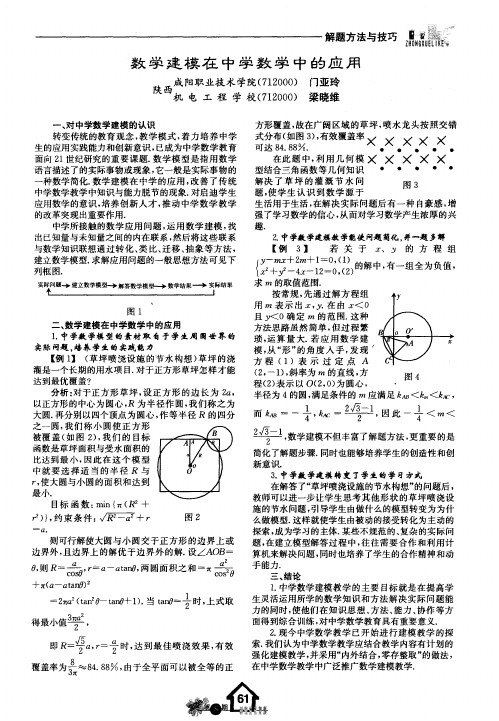 解题方法与技巧
ZHONGXUELIKE
数学建模在中学数学中的应用
陕西
咸阳职业技术学院(712000) 门亚玲
机电工程学校(712000) 梁晓维
一、对中学数学建模的认识
转变传统的教育观念,教学模式,着力培养中学
生的应用实践能力和创新意识,已成为中学数学教育
面向21世纪研究的重要课题.数学模型是指用数学
语言描述了的实际事物或现象,它一般是实际事物的
一种数学简化.数学建模在中学的应用,改善了传统
中学数学教学中知识与能力脱节的现象.对启迪学生
应用数学的意识,培养创新人才,推动中学数学教学
的改革突现出重要作用.
中学所接触的数学应用问题,运用数学建模,找
出已知量与未知量之间的内在联系,然后将这些联系
与数学知识联想通过转化、类比、迁移、抽象等方法,
建立数学模型.求解应用问题的一般思想方法可见下
列框图.
实际问题→建立数学模型→解答数学模型→数学结果→实际结果
图1
二、数学建模在中学数学中的应用
1.中学数学模型的素材取自于学生周围世界的
实际问题,培养学生的实践能力
【例1】 (草坪喷浇设施的节水构想)草坪的浇
灌是一个长期的用水项目.对于正方形草坪怎样才能
达到最优覆盖?
分析:对于正方形草坪,设正方形的边长为2a,
以正方形的中心为圆心,R为半径作圆,我们称之为
大圆.再分别以四个顶点为圆心,作等半径R的四分
之一圆,我们称小圆使正方形
被覆盖(如图2),我们的目标
函数是草坪面积与受水面积的
比达到最小,因此在这个模型
中就要选择适当的半径R与
r,使大圆与小圆的面积和达到
最小.
目标函数:min{π(R²+
r²)},约束条件:√R²−a²+r
=a.
图2
则可行解使大圆与小圆交于正方形的边界上或
边界外,且边界上的解优于边界外的解.设∠AOB=
θ,则R=a/cosθ,r=a−atanθ,两圆面积之和=π a²/cos²θ
+π(a−atanθ)²
=2πa²(tan²θ−tanθ+1).当tanθ=1/2时,上式取
得最小值3πa²/2,
即R=√5/2 a,r=a/2时,达到最佳喷浇效果,有效
覆盖率为8/3π≈84.88%,由于全平面可以被全等的正
方形覆盖,故在广阔区域的草坪,喷水龙头按照交错
式分布(如图3),有效覆盖率
可达84.88%.
在此题中,利用几何模
型结合三角函数等几何知识
解决了草坪的灌溉节水问
题,使学生认识到数学源于
图3
生活用于生活,在解决实际问题后有一种自豪感,增
强了学习数学的信心,从而对学习数学产生浓厚的兴
趣.
2.中学数学建模教学能使问题简化,并一题多解
【例3】 若关于x、y的方程组
{y−mx+2m+1=0,(1)
x²+y²−4x−12=0,(2)的解中,有一组全为负值,
求m的取值范围.
按常规,先通过解方程组
用m表示出x,y.在由x<0
且y<0确定m的范围.这种
方法思路虽然简单,但过程繁
琐,运算量大.若应用数学建
模,从"形"的角度入手,发现
方程(1)表示过定点A
(2,−1),斜率为m的直线,方
程(2)表示以O′(2,0)为圆心,
图4
半径为4的圆,满足条件的m应满足kAB<km<kAC,
而kAB=−1/4,kAC=(2√3−1)/2,因此−1/4<m<
(2√3−1)/2,数学建模不但丰富了解题方法,更重要的是
简化了解题步骤.同时也能够培养学生的创造性和创
新意识.
3.中学数学建模转变了学生的学习方式
在解答了"草坪喷浇设施的节水构想"的问题后,
教师可以进一步让学生思考其他形状的草坪喷浇设
施的节水问题,引导学生由做什么的模型转变为为什
么做模型.这样就使学生由被动的接受转化为主动的
探索,成为学习的主体.某些不规范的、复杂的实际问
题,在建立模型解答过程中,往往需要合作和利用计
算机来解决问题,同时也培养了学生的合作精神和动
手能力.
三、结论
1.中学数学建模教学的主要目标就是在提高学
生灵活运用所学的数学知识和方法解决实际问题能
力的同时,使他们在知识思想、方法、能力、协作等方
面得到综合训练,对中学数学教育具有重要意义.
2.现今中学数学教学已开始进行建模教学的探
索.我们认为中学数学教学应结合教学内容有计划的
强化建模教学,并采用"内外结合,零存整取"的做法,
在中学数学教学中广泛推广数学建模教学.
61